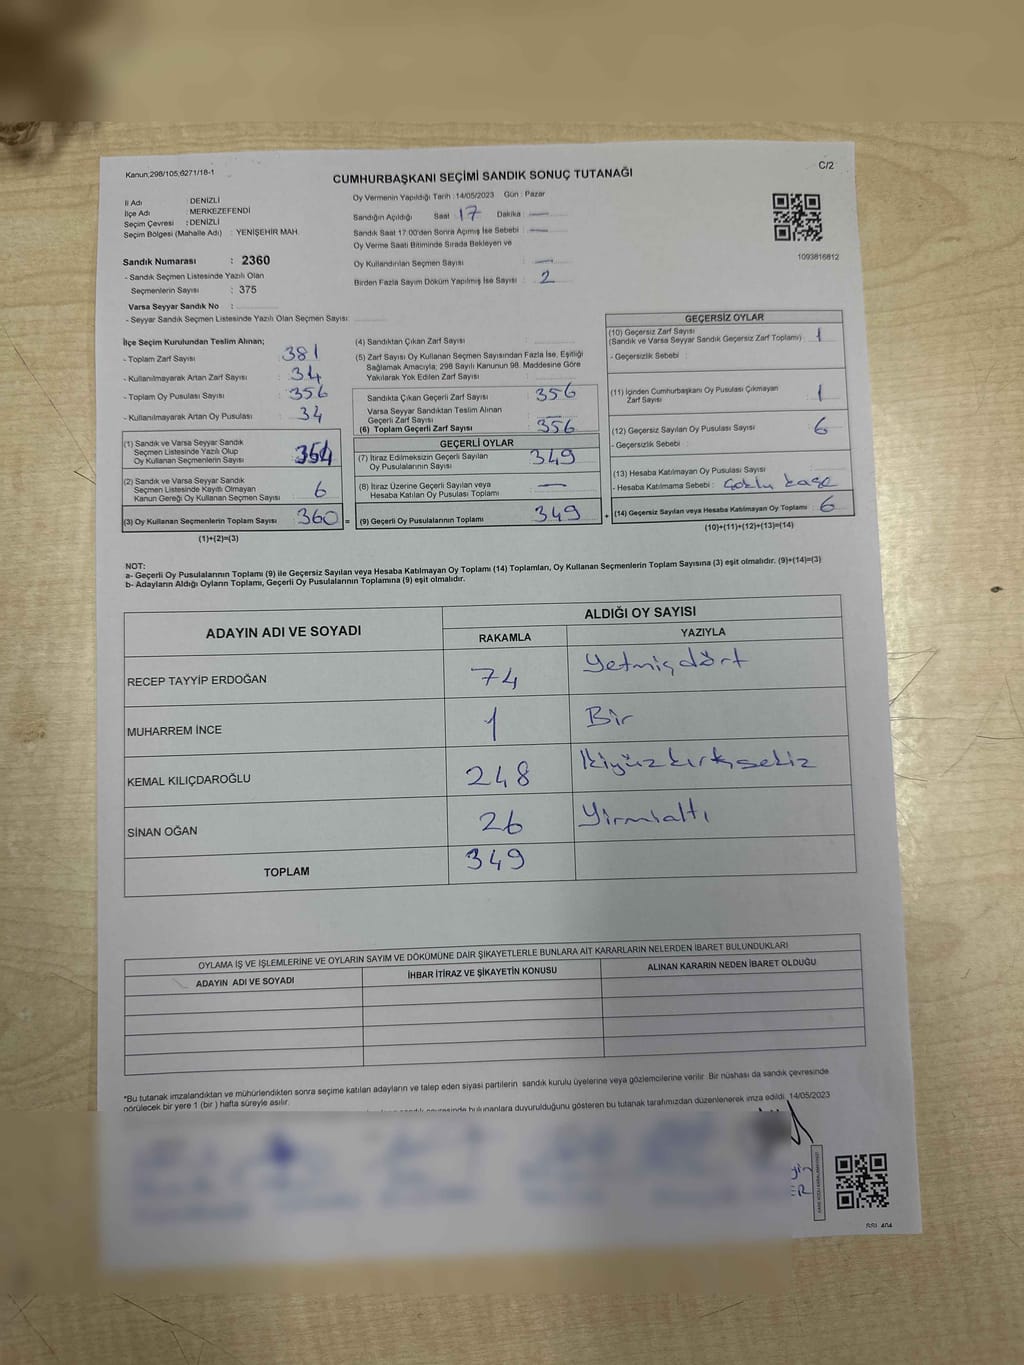 Kanun;298/105,6271/18-1
C/2
CUMHURBAŞKANI SEÇİMİ SANDIK SONUÇ TUTANAĞI
İl Adı : DENİZLİ
İlçe Adı : MERKEZEFENDİ
Seçim Çevresi : DENİZLİ
Seçim Bölgesi (Mahalle Adı) : YENİŞEHİR MAH.
Sandık Numarası : 2360
- Sandık Seçmen Listesinde Yazılı Olan
Seçmenlerin Sayısı : 375
Varsa Seyyar Sandık No :
- Seyyar Sandık Seçmen Listesinde Yazılı Olan Seçmen Sayısı:
Oy Vermenin Yapıldığı Tarih : 14/05/2023 Gün : Pazar
Sandığın Açıldığı Saat : 17 Dakika : —
Sandık Saat 17:00'den Sonra Açımış İse Sebebi : —
Oy Verme Saati Bitiminde Sırada Bekleyen ve
Oy Kullandırılan Seçmen Sayısı : —
Birden Fazla Sayım Döküm Yapılmış İse Sayısı : 2
1093816812
İlçe Seçim Kurulundan Teslim Alınan;
- Toplam Zarf Sayısı : 381
- Kullanılmayarak Artan Zarf Sayısı : 34
- Toplam Oy Pusulası Sayısı : 356
- Kullanılmayarak Artan Oy Pusulası : 34
(1) Sandık ve Varsa Seyyar Sandık
Seçmen Listesinde Yazılı Olup
Oy Kullanan Seçmenlerin Sayısı : 354
(2) Sandık ve Varsa Seyyar Sandık
Seçmen Listesinde Kayıtlı Olmayan
Kanun Gereği Oy Kullanan Seçmen Sayısı : 6
(3) Oy Kullanan Seçmenlerin Toplam Sayısı : 360 =
(1)+(2)=(3)
(4) Sandıktan Çıkan Zarf Sayısı :
(5) Zarf Sayısı Oy Kullanan Seçmen Sayısından Fazla İse, Eşitliği
Sağlamak Amacıyla; 298 Sayılı Kanunun 98. Maddesine Göre
Yakılarak Yok Edilen Zarf Sayısı :
Sandıkta Çıkan Geçerli Zarf Sayısı : 356
Varsa Seyyar Sandıktan Teslim Alınan
Geçerli Zarf Sayısı :
(6) Toplam Geçerli Zarf Sayısı : 356
GEÇERLİ OYLAR
(7) İtiraz Edilmeksizin Geçerli Sayılan
Oy Pusulalarının Sayısı : 349
(8) İtiraz Üzerine Geçerli Sayılan veya
Hesaba Katılan Oy Pusulası Toplamı : —
(9) Geçerli Oy Pusulalarının Toplamı : 349 +
GEÇERSİZ OYLAR
(10) Geçersiz Zarf Sayısı
(Sandık ve Varsa Seyyar Sandık Geçersiz Zarf Toplamı) : 1
- Geçersizlik Sebebi :
(11) İçinden Cumhurbaşkanı Oy Pusulası Çıkmayan
Zarf Sayısı : 1
(12) Geçersiz Sayılan Oy Pusulası Sayısı : 6
- Geçersizlik Sebebi :
(13) Hesaba Katılmayan Oy Pusulası Sayısı :
- Hesaba Katılmama Sebebi : Çoklu kaşe
(14) Geçersiz Sayılan veya Hesaba Katılmayan Oy Toplamı : 6
(10)+(11)+(12)+(13)=(14)
NOT:
a- Geçerli Oy Pusulalarının Toplamı (9) ile Geçersiz Sayılan veya Hesaba Katılmayan Oy Toplamı (14) Toplamları, Oy Kullanan Seçmenlerin Toplam Sayısına (3) eşit olmalıdır. (9)+(14)=(3)
b- Adayların Aldığı Oyların Toplamı, Geçerli Oy Pusulalarının Toplamına (9) eşit olmalıdır.
ADAYIN ADI VE SOYADI ALDIĞI OY SAYISI
RAKAMLA YAZIYLA
RECEP TAYYİP ERDOĞAN 74 Yetmişdört
MUHARREM İNCE 1 Bir
KEMAL KILIÇDAROĞLU 248 İkiyüzkırksekiz
SİNAN OĞAN 26 Yirmialtı
TOPLAM 349
OYLAMA İŞ VE İŞLEMLERİNE VE OYLARIN SAYIM VE DÖKÜMÜNE DAİR ŞİKAYETLERLE BUNLARA AİT KARARLARIN NELERDEN İBARET BULUNDUKLARI
ADAYIN ADI VE SOYADI İHBAR İTİRAZ VE ŞİKAYETİN KONUSU ALINAN KARARIN NEDEN İBARET OLDUĞU
*Bu tutanak imzalandıktan ve mühürlendikten sonra seçime katılan adayların ve talep eden siyasi partilerin sandık kurulu üyelerine veya gözlemcilerine verilir. Bir nüshası da sandık çevresinde
görülecek bir yere 1 (bir ) hafta süreyle asılır.
bulunanlara duyurulduğunu gösteren bu tutanak tarafımızdan düzenlenerek imza edildi. 14/05/2023